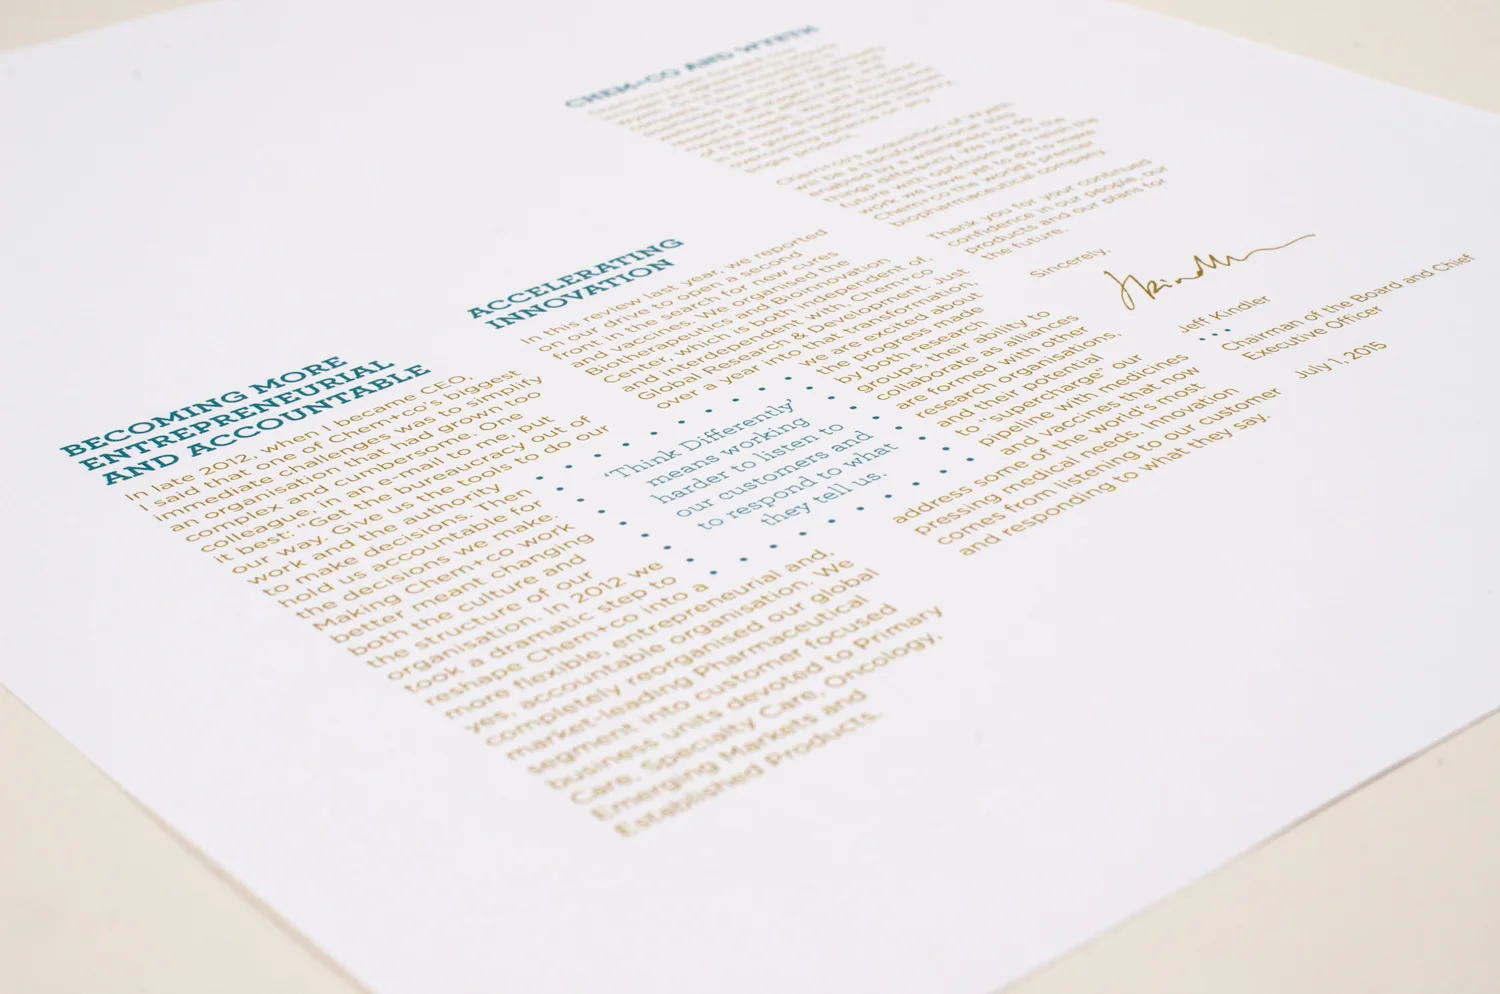 BECOMING MORE
ENTREPRENEURIAL
AND ACCOUNTABLE
In late 2012, when I became CEO,
I said that one of Chem+co's biggest
immediate challenges was to simplify
an organisation that had grown too
complex and cumbersome. One
colleague, in an email to me, put
it best: "Get the bureaucracy out of
our way. Give us the tools to do our
work and the authority
to make decisions. Then
hold us accountable for
the decisions we make.
Making Chem+co work
better meant changing
both the culture and
the structure of our
organisation. In 2012 we
took a dramatic step to
reshape Chem+co into a
more flexible, entrepreneurial and,
yes, accountable organisation. We
completely reorganised our global
market-leading Pharmaceutical
segment into customer focused
business units devoted to Primary
Care, Specialty Care, Oncology,
Emerging Markets and
Established Products.
ACCELERATING
INNOVATION
In this review last year, we reported
on our drive to open a second
front in the search for new cures
and vaccines. We organised the
Biotherapeutics and BioInnovation
Center, which is both independent of,
and interdependent with, Chem+co
Global Research & Development. Just
over a year into that transformation,
we are excited about
the progress made
by both research
groups, their ability to
collaborate as alliances
are formed with other
research organisations,
and their potential
to "supercharge" our
pipeline with medicines
and vaccines that now
address some of the world's most
pressing medical needs. Innovation
comes from listening to our customer
and responding to what they say.
'Think Differently'
means working
harder to listen to
our customers and
to respond to what
they tell us.
CHEM+CO AND WYETH
of the
single product.
Chem+co's acquisition of Wyeth
will be a transformational step
enabled by a willingness to do
things differently. We look to the
future with optimism and relish the
work we have yet to do to make
Chem+co the world's premier
biopharmaceutical company.
Thank you for your continued
confidence in our people, our
products and our plans for
the future.
Sincerely,
Jeff Kindler
Chairman of the Board and Chief
Executive Officer
July 1, 2015